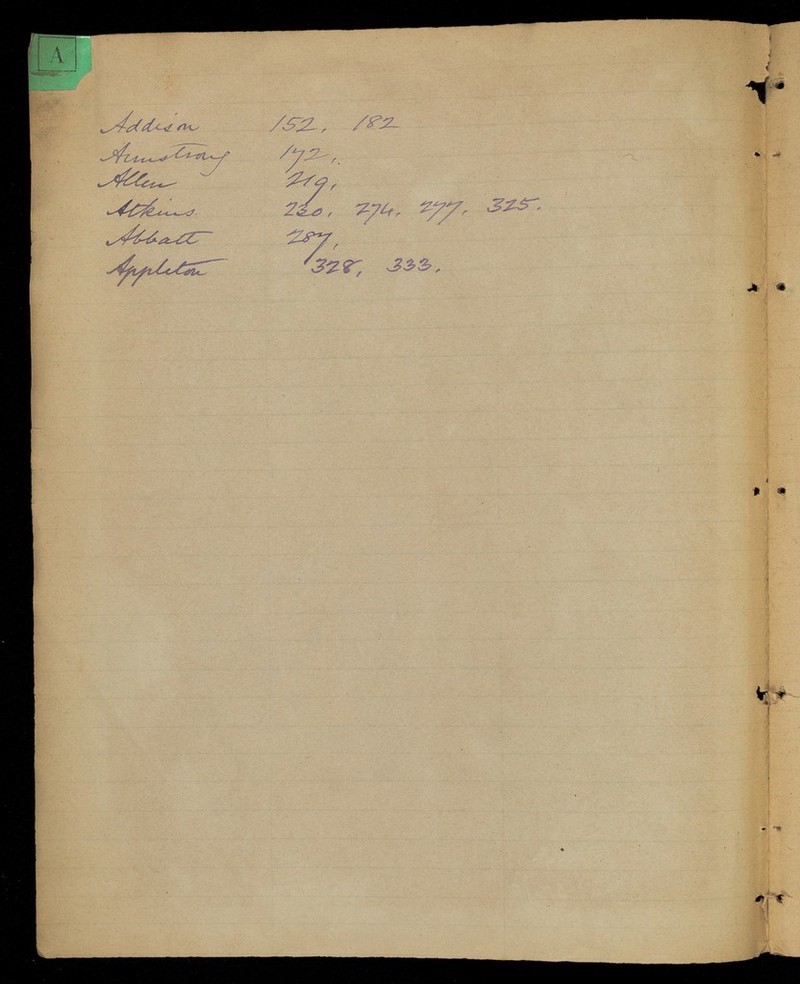 A
Addison 152, 182
Armstrong 172,
Allen 219,
Atkins 230, 274, 277, 325.
Abbatt 287,
Appleton 328, 333,